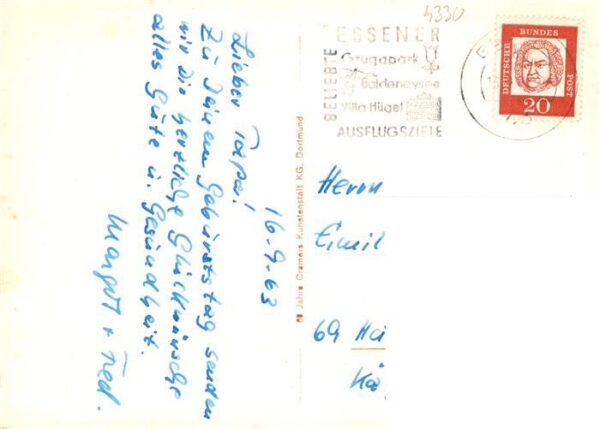 16-9-63
Lieber Papa!
Zu Deinem Geburtstag senden
wir Dir herzliche Glückwünsche
alles Gute u. Gesundheit.
Margot + Fred.
60 Jahre Cramers Kunstanstalt KG, Dortmund
4330
BELIEBTE
ESSENER
Grugapark
Baldeneysee
Villa Hügel
AUSFLUGSZIELE
DEUTSCHE
BUNDES
POST
20
Herrn
Emil
69 Hei